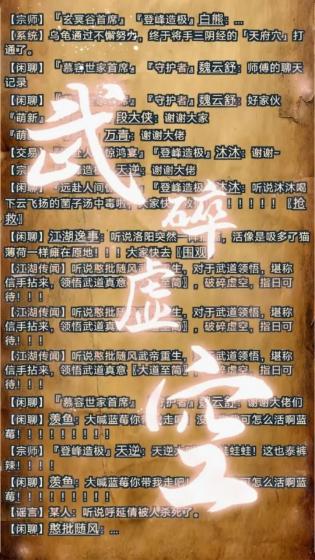 【宗师】『玄冥谷首席』『登峰造极』白熊：…
【系统】乌龟通过不懈努力，终于将手三阴经的「天府穴」打
通了。
【闲聊】『慕容世家首席』『守护者』魏云舒：师傅的聊天
记录
【闲聊】『慕容世家首席』『守护者』魏云舒：好家伙
『萌新 段大侠：谢谢大家
『萌 万青：谢谢大佬
【交易 人 惊鸿宴』『登峰造极』沐沐：谢谢~
【宗 造极』天逆：谢谢大佬
【闲 『远赴人间 『登峰造极』沐沐：听说沐沐喝
下云飞扬的菌子汤中毒啦 大家快去 ！！！！！【抢
救】
【闲聊】江湖逸事：听说洛阳突然一阵 ，活像是吸多了猫
薄荷一样瘫在原地！！大家快去【围观】
【江湖传闻】听说憨批随风武帝重生，对于武道领悟，堪称
信手拈来，领悟武道真意【大道至简】，破碎虚空，指日可
待！！！
【江湖传闻】听说憨批随 重生，对于武道领悟，堪称
信手拈来，领悟武道真意 ，破碎虚空，指日可
待！！！
【江湖传闻】听说憨批随风武帝重生，对于武道领悟，堪称
信手拈来，领悟武道真意【大道至简】，破碎虚空，指日可
待！！！
【闲聊】『慕容世家首席』『守护者』魏云舒：谢谢大佬们
【闲聊】羡鱼：大喊蓝莓你 我走吧 没 可怎么活啊蓝
莓！！！！！！！！
【宗师】『登峰造极』天逆：天逆大 哇蛙蛙！这也泰裤
辣！！！
【闲聊】羡鱼：大喊蓝莓你带我走吧！ 可怎么活啊蓝
莓！！！！！！！！
【谣言】某人：听说呼延倩被人杀死了。
【闲聊】憨批随风：…
武碎虚空